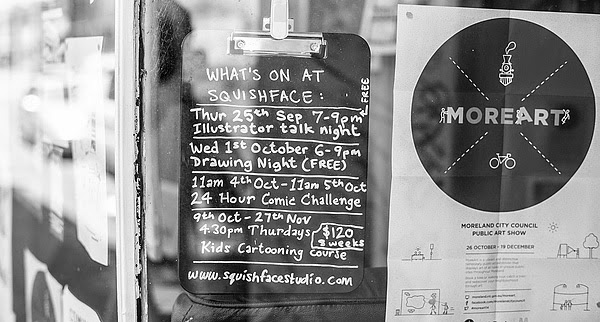 WHAT'S ON AT
SQUISHFACE:
Thur 25th Sep 7-9pm
FREE
Illustrator talk night
Wed 1st October 6-9pm
Drawing Night (FREE)
11am 4th Oct - 11am 5th Oct
24 Hour Comic Challenge
9th Oct - 27th Nov
4:30pm Thursdays
$120
8 weeks
Kids Cartooning course
www.squishfacestudio.com
MOREART
MORELAND CITY COUNCIL
PUBLIC ART SHOW
26 OCTOBER - 19 DECEMBER